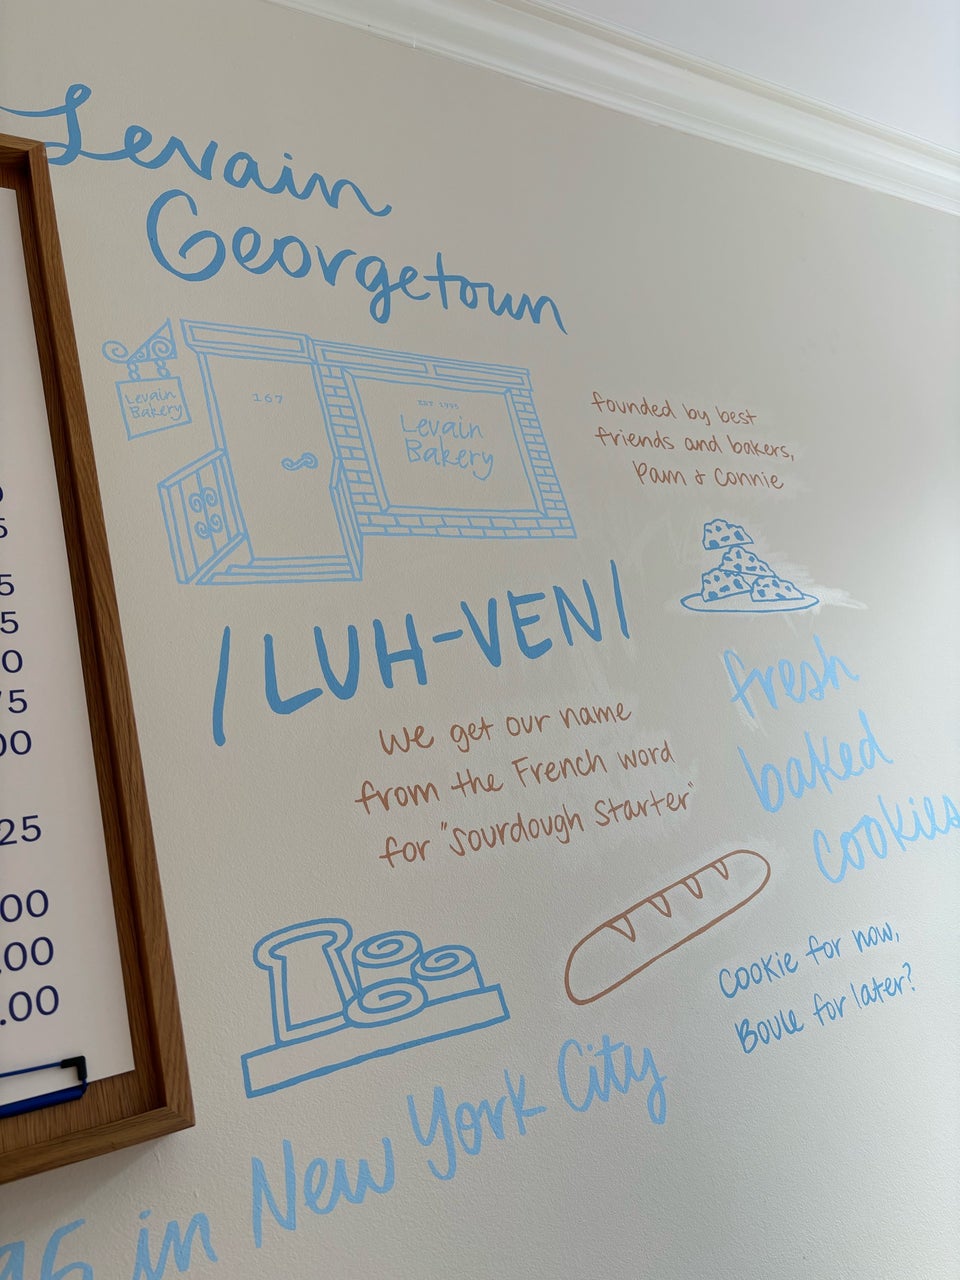 Levain
Georgetown
Levain
Bakery
167
EST 1995
Levain
Bakery
founded by best
friends and bakers,
Pam & Connie
/LUH-VEN/
We get our name
from the French word
for "Sourdough Starter"
fresh
baked
cookies
Cookie for now,
Boule for later?
95 in New York City
5
5
0
75
00
25
00
.00
.00